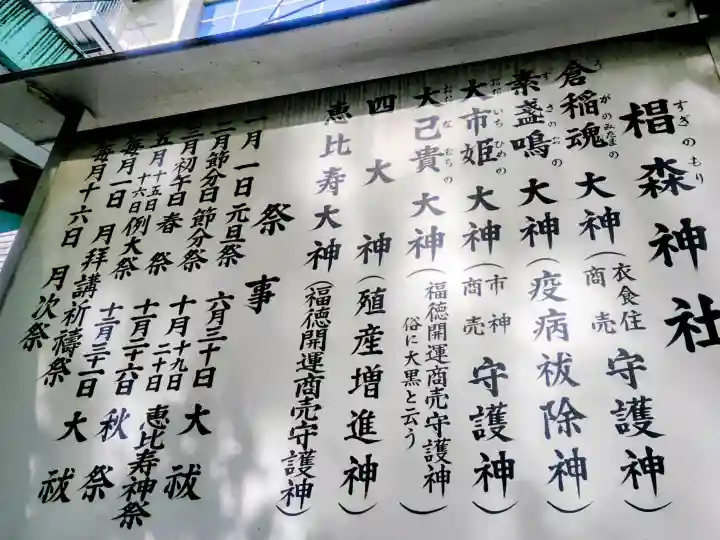 椙森神社
すぎのもり
倉稲魂大神(衣食住商売守護神)
うがのみたまの
素盞鳴大神(疫病祓除神)
すさのおの
大市姫大神(市神商売守護神)
おおいちひめの
大己貴大神(福徳開運商売守護神 俗に大黒と云う)
おおなむちの
四大神(殖産増進神)
恵比寿大神(福徳開運商売守護神)
祭事
一月一日元旦祭
二月節分日節分祭
二月初午日春祭
五月十五日十六日例大祭
毎月一日月拝講祈禱祭
毎月十六日月次祭
六月三十日大祓
十月十九日二十日恵比寿神祭
十一月二十六日秋祭
十二月三十一日大祓